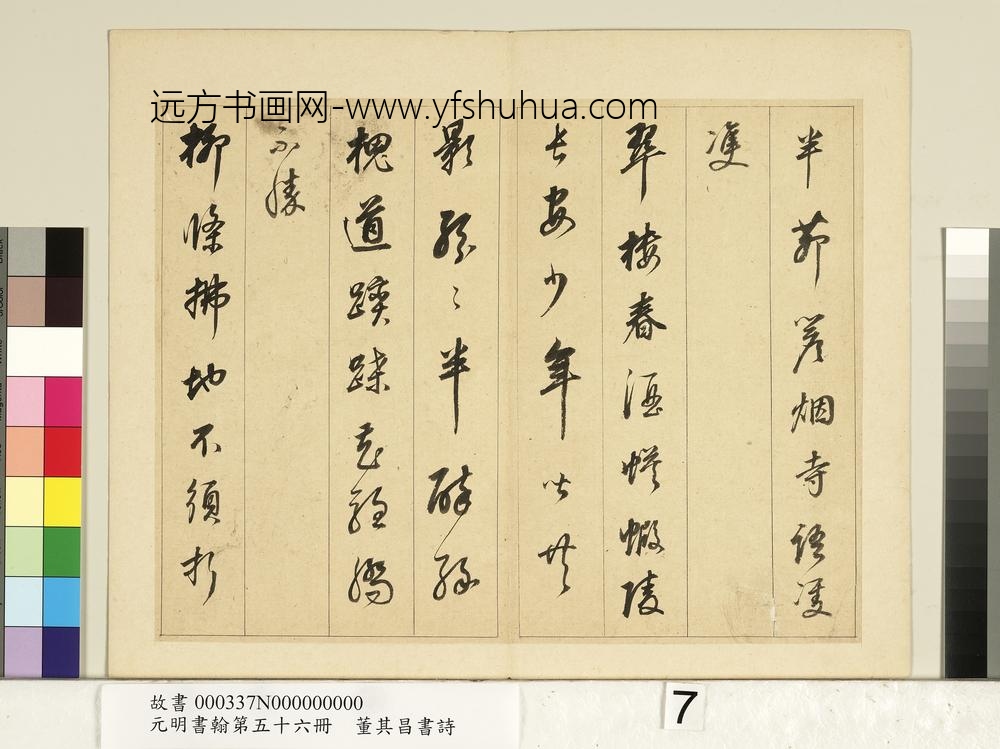 远方书画网-www.yfshuhua.com
半 烟寺語
翠樓春酒蟆蝦陵
長安少年皆共
矜紛〻半醉綠
槐道躞蹀花驄驕
不勝
柳條拂地不須折
故書 000337N000000000
元明書翰第五十六冊 董其昌書詩
7